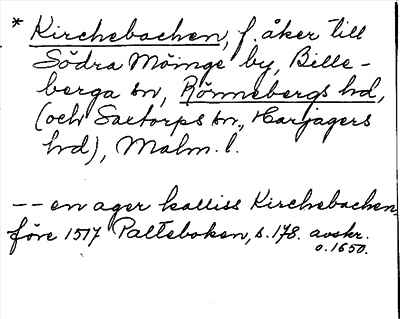 * Kirchebachen, f. åker till
Södra Möinge by, Bille-
berga sn, Rönnebergs hd,
(och Saxtorps sn., Harjagers
hd), Malm. l.
-- en ager kalliss Kirchebachen,
före 1517 Palteboken, s. 178. avskr.
o. 1650.